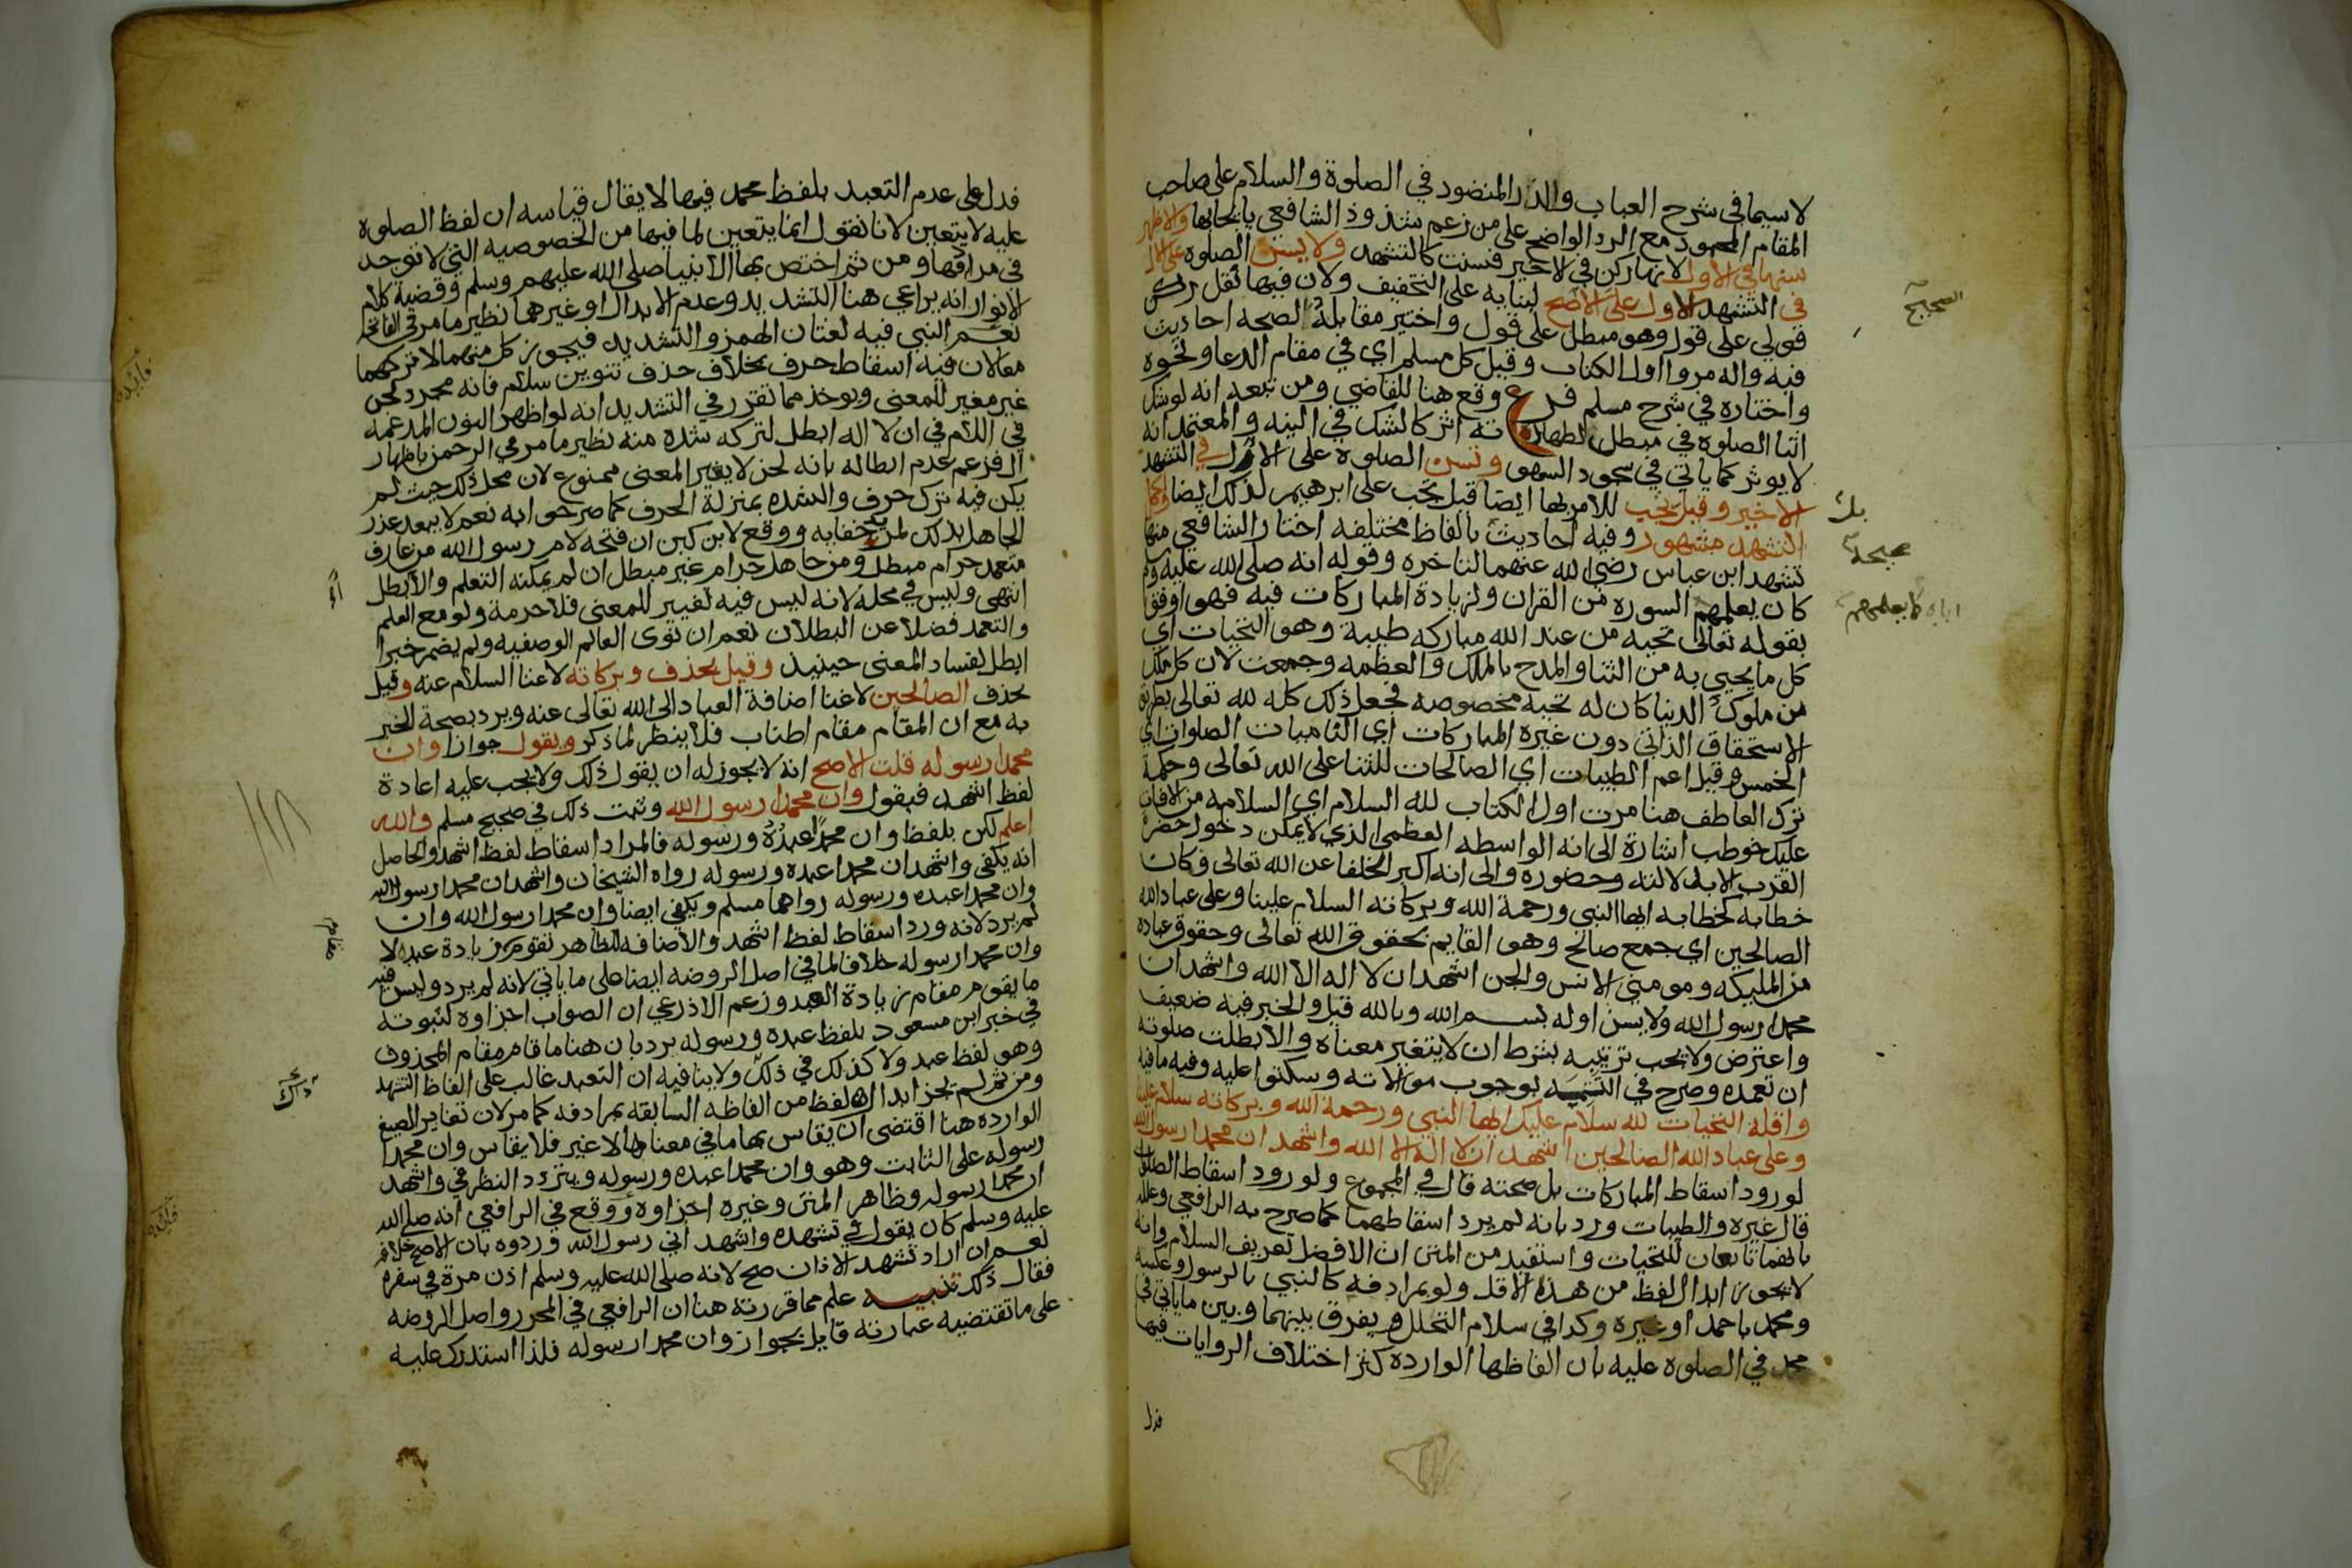 لا سيما في شرح العباب والدر المنضود في الصلوة والسلام على صاحب
المقام المحمود مع الرد الواضح على من زعم شذوذ الشافعي بايجابها والاظهر
سنها في الاول لانها ركن في الاخير فسنت كالتشهد ولا يسن الصلوة على الال
في التشهد الاول على الاصح لبنايه على التخفيف ولان فيها نقل ركن
قولي على قول وهو مبطل على قول واختير مقابله لصحة احاديث
فيه واله مروا اول الكتاب وقيل كل مسلم اي في مقام الدعا ونحوه
واختاره في شرح مسلم فرع وقع هنا للقاضي ومن تبعه انه لو شك
اثنا الصلوة في مبطل الطهارة انه اثر كالشك في النيه والمعتمد انه
لا يوثر كما ياتي في سجود السهو وتسن الصلوة على الال في التشهد
الاخير وقيل تجب للامر بها ايضا قيل تجب على ابرهيم لذلك ايضا واكمل
التشهد مشهور وفيه احاديث بالفاظ مختلفه اختار الشافعي منها
تشهد ابن عباس رضي الله عنهما لتاخره وقوله انه صلى الله عليه وسلم
كان يعلمهم السورة من القران ولزيادة المباركات فيه فهو اوفق
بقوله تعالى تحيه من عند الله مباركه طيبة وهو التحيات اي
كل ما يحيى به من الثنا والمدح بالملك والعظمه وجمعت لان كل ملك
من ملوك الدنيا كان له تحيه مخصوصه فجعل ذلك كله لله تعالى بطريق
الاستحقاق الذاتي دون غيره المباركات اي الناميات الصلوات اي
الخمس وقيل اعم الطيبات اي الصالحات للثنا على الله تعالى وحكمة
ترك العاطف هنا مرت اول الكتاب لله السلام اي السلامه من الافات
عليك خوطب اشارة الى انه الواسطه العظمى الذي لا يمكن دخول حضرة
القرب الا بدلالته وحضوره والى انه اكبر الخلفا عن الله تعالى فكان
خطابه كخطابه ايها النبي ورحمة الله وبركاته السلام علينا وعلى عباد الله
الصالحين اي جمع صالح وهو القايم بحقوق الله تعالى وحقوق عباده
من المليكه ومومني الانس والجن اشهد ان لا اله الا الله واشهد ان
محمدا رسول الله ولا يسن اوله بسم الله وبالله قيل والخبر فيه ضعيف
واعترض ولا يجب ترتيبه بشرط ان لا يتغير معناه والا بطلت صلوته
ان تعمده وصرح في التتمه بوجوب موالاته وسكتوا عليه وفيه ما فيه
واقله التحيات لله سلام عليك ايها النبي ورحمة الله وبركاته سلام علينا
وعلى عباد الله الصالحين اشهد ان لا اله الا الله واشهد ان محمدا رسول الله
لورود اسقاط المباركات بل صحته قال في المجموع ولورود اسقاط الصلوات
قال غيره والطيبات ورد بانه لم يرد اسقاطهما كما صرح به الرافعي وعلله
بانهما تابعان للتحيات واستفيد من المتن ان الافضل تعريف السلام وانه
لا يجوز ابدال لفظ من هذه الاقل ولو بمرادفه كالنبي بالرسول وعكسه
ومحمد باحمد او غيره وكدا في سلام التحلل ويفرق بينهما وبين ما ياتي في
محمد في الصلوه عليه بان الفاظها الوارده كثر اختلاف الروايات فيها
فدل
الصحيح
بل
صحيحة
كما يعلمهم
فدل على عدم التعبد بلفظ محمد فيها لا يقال قياسه ان لفظ الصلوة
عليه لا يتعين لانا نقول انما يتعين لما فيها من الخصوصيه التي لا توجد
في مرادفها ومن ثم اختص بها الانبيا صلى الله عليهم وسلم وقضية كلام
الانوار انه يراعي هنا التشديد وعدم الابدال او غيرهما نظير ما مر في الفاتحه
نعم النبي فيه لغتان الهمز والتشديد فيجوز كل منهما لا تركهما
معا لان فيه اسقاط حرف بخلاف حذف تنوين سلام فانه مجرد لحن
غير مغير للمعنى ويوخذ مما تقرر في التشديد انه لو اظهر النون المدغمه
في اللام في ان لا اله ابطل لتركه شده منه نظير ما مر في الرحمن باظهار
ال فزعم عدم ابطاله بانه لحن لا يغير المعنى ممنوع لان محل ذلك حيث لم
يكن فيه ترك حرف والشده بمنزلة الحرف كما صرحوا به نعم لا يبعد عذر
الجاهل بذلك لمزيد خفايه ووقع لابن كبن ان فتحه لام رسول الله من عارف
متعمد حرام مبطل ومن جاهل حرام غير مبطل ان لم يمكنه التعلم والا بطل
انتهى وليس في محله لانه ليس فيه تغيير للمعنى فلا حرمة ولو مع العلم
والتعمد فضلا عن البطلان نعم ان نوى العالم الوصفيه ولم يضمر خبرا
ابطل لفساد المعنى حينيذ وقيل يحذف وبركاته لاغنا السلام عنه وقيل
يحذف الصالحين لاغنا اضافة العباد الى الله تعالى عنه ويرد بصحة الخبر
به مع ان المقام مقام اطناب فلا ينظر لما ذكر ويقول جوازا وان
محمدا رسوله قلت الاصح انه لا يجوز له ان يقول ذلك ولا يجب عليه اعادة
لفظ اشهد فيقول وان محمدا رسول الله وثبت ذلك في صحيح مسلم والله
اعلم لكن بلفظ وان محمدا عبده ورسوله فالمراد اسقاط لفظ اشهد والحاصل
انه يكفي واشهد ان محمدا عبده ورسوله رواه الشيخان واشهد ان محمدا رسول الله
وان محمدا عبده ورسوله رواهما مسلم ويكفي ايضا وان محمدا رسول الله وان
لم يرد لانه ورد اسقاط لفظ اشهد والاضافه للظاهر تقوم زيادة عبد لا
وان محمدا رسوله خلافا لما في اصل الروضه ايضا على ما ياتي لانه لم يرد وليس فيه
ما يقوم مقام زيادة العبد وزعم الاذرعي ان الصواب اجزاوه لثبوته
في خبر ابن مسعود بلفظ عبده ورسوله يرد بان هنا ما قام مقام المحذوف
وهو لفظ عبد ولا كذلك في ذلك ولا ينافيه ان التعبد غالب على الفاظ التشهد
ومن ثم لم يجز ابدال لفظ من الفاظه السابقه بمرادفه كما مر لان تغاير الصيغ
الوارده هنا اقتضى ان يقاس بها ما في معناها لا غير فلا يقاس وان محمدا
رسوله على الثابت وهو وان محمدا عبده ورسوله ويتردد النظر في واشهد
ان محمدا رسوله وظاهر المتن وغيره اجزاوه ووقع في الرافعي انه صلى الله
عليه وسلم كان يقول في تشهده واشهد اني رسول الله وردوه بان الاصح خلافه
نعم ان اراد تشهد الاذان صح لانه صلى الله عليه وسلم اذن مرة في سفره
فقال ذلك تنبيه علم مما قررته هنا ان الرافعي في المحرر واصل الروضه
على ما تقتضيه عبارته قايل بجواز وان محمدا رسوله فلذا استدرك عليه
فائدة
مقام
فائدة